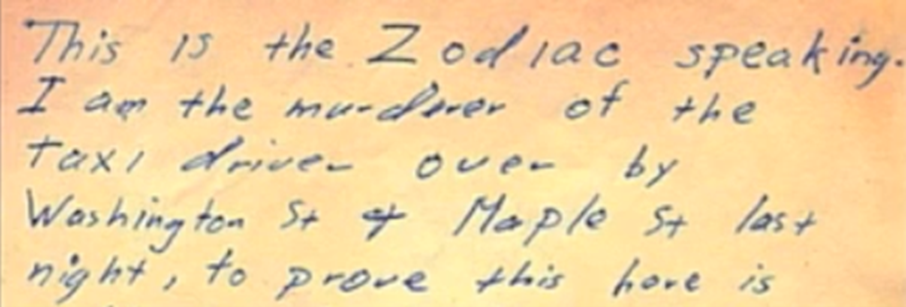 This is the Zodiac speaking.
I am the murderer of the
taxi driver over by
Washington St & Maple St last
night, to prove this here is